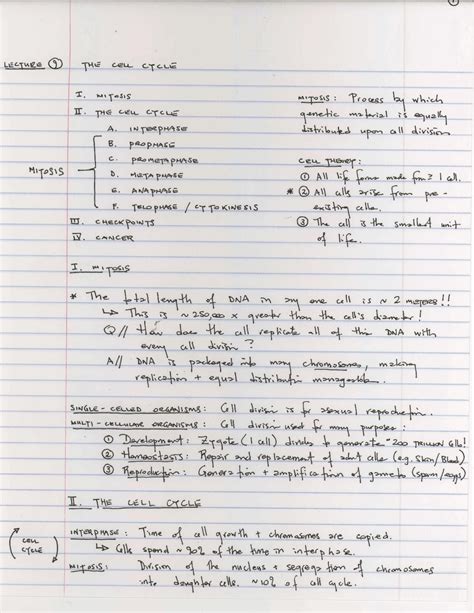 1
LECTURE 9 THE CELL CYCLE
I. MITOSIS
II. THE CELL CYCLE
A. INTERPHASE
B. PROPHASE
C. PROMETAPHASE
MITOSIS D. METAPHASE
E. ANAPHASE
F. TELOPHASE / CYTOKINESIS
III. CHECKPOINTS
IV. CANCER
MITOSIS: Process by which
genetic material is equally
distributed upon cell division
CELL THEORY:
① All life forms made from ≥ 1 cell.
* ② All cells arise from pre-
existing cells.
③ The cell is the smallest unit
of life.
I. MITOSIS
* The total length of DNA in any one cell is ~ 2 METERS!!
↳ This is ~250,000 x greater than the cell's diameter!
Q// How does the cell replicate all of this DNA with
every cell division?
A// DNA is packaged into many chromosomes, making
replication + equal distribution manageable.
SINGLE-CELLED ORGANISMS: Cell division is for asexual reproduction.
MULTI-CELLULAR ORGANISMS: Cell division used for many purposes:
① Development: Zygote (1 cell) divides to generate ~200 TRILLION Cells!
② Homeostasis: Repair and replacement of adult cells (e.g. Skin/Blood)
③ Reproduction: Generation + amplification of gametes (sperm/eggs).
II. THE CELL CYCLE
CELL
CYCLE
INTERPHASE: Time of cell growth + chromosomes are copied.
↳ Cells spend ~90% of the time in interphase.
MITOSIS: Division of the nucleus + segregation of chromosomes
into daughter cells. ~10% of cell cycle.